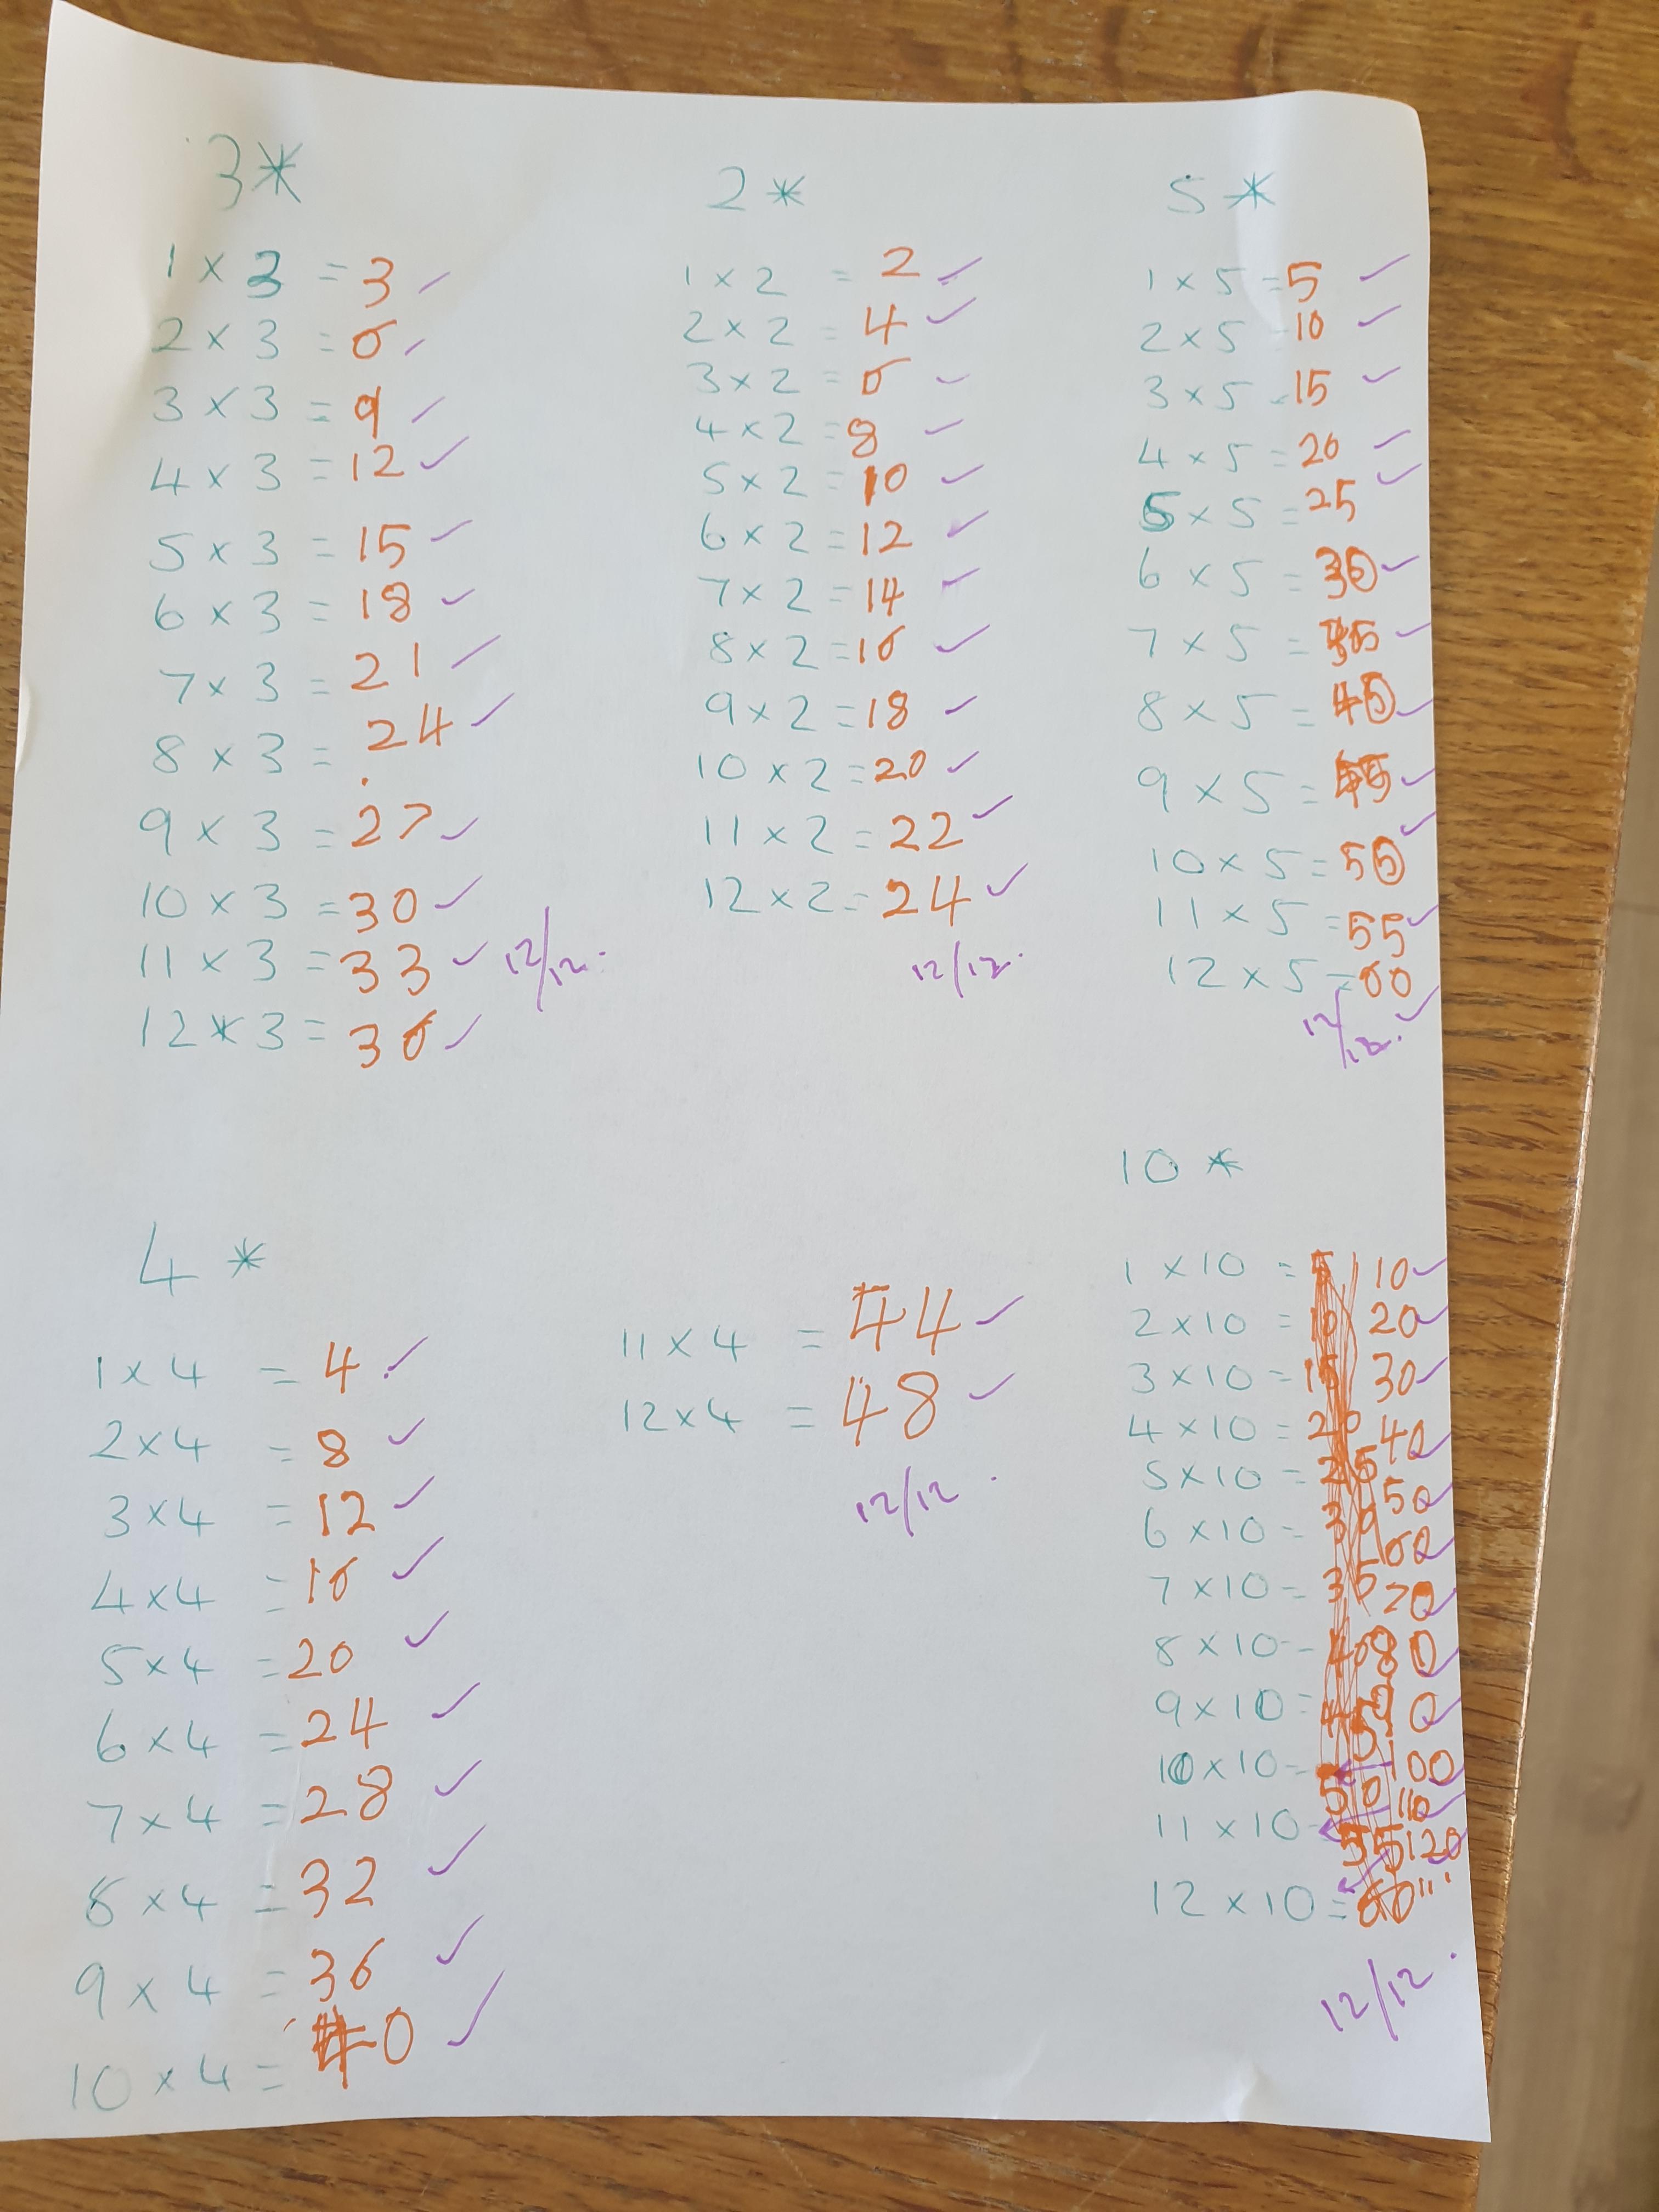 3*
1 x 3 = 3 ✓
2 x 3 = 6 ✓
3 x 3 = 9 ✓
4 x 3 = 12 ✓
5 x 3 = 15 ✓
6 x 3 = 18 ✓
7 x 3 = 21 ✓
8 x 3 = 24 ✓
9 x 3 = 27 ✓
10 x 3 = 30 ✓
11 x 3 = 33 ✓
12 x 3 = 36 ✓
12/12.
2 *
1 x 2 = 2 ✓
2 x 2 = 4 ✓
3 x 2 = 6 ✓
4 x 2 = 8 ✓
5 x 2 = 10 ✓
6 x 2 = 12 ✓
7 x 2 = 14 ✓
8 x 2 = 16 ✓
9 x 2 = 18 ✓
10 x 2 = 20 ✓
11 x 2 = 22 ✓
12 x 2 = 24 ✓
12/12.
5 *
1 x 5 = 5 ✓
2 x 5 = 10 ✓
3 x 5 = 15 ✓
4 x 5 = 20 ✓
5 x 5 = 25 ✓
6 x 5 = 30 ✓
7 x 5 = 35 ✓
8 x 5 = 40 ✓
9 x 5 = 45 ✓
10 x 5 = 50 ✓
11 x 5 = 55 ✓
12 x 5 = 60 ✓
12/12.
4 *
1 x 4 = 4 ✓
2 x 4 = 8 ✓
3 x 4 = 12 ✓
4 x 4 = 16 ✓
5 x 4 = 20 ✓
6 x 4 = 24 ✓
7 x 4 = 28 ✓
8 x 4 = 32 ✓
9 x 4 = 36 ✓
10 x 4 = 40 ✓
11 x 4 = 44 ✓
12 x 4 = 48 ✓
12/12.
10 *
1 x 10 = 5 10 ✓
2 x 10 = 10 20 ✓
3 x 10 = 15 30 ✓
4 x 10 = 20 40 ✓
5 x 10 = 25 50 ✓
6 x 10 = 30 60 ✓
7 x 10 = 35 70 ✓
8 x 10 = 40 80 ✓
9 x 10 = 45 90 ✓
10 x 10 = 50 100 ✓
11 x 10 = 55 110 ✓
12 x 10 = 60 120 ✓
12/12.